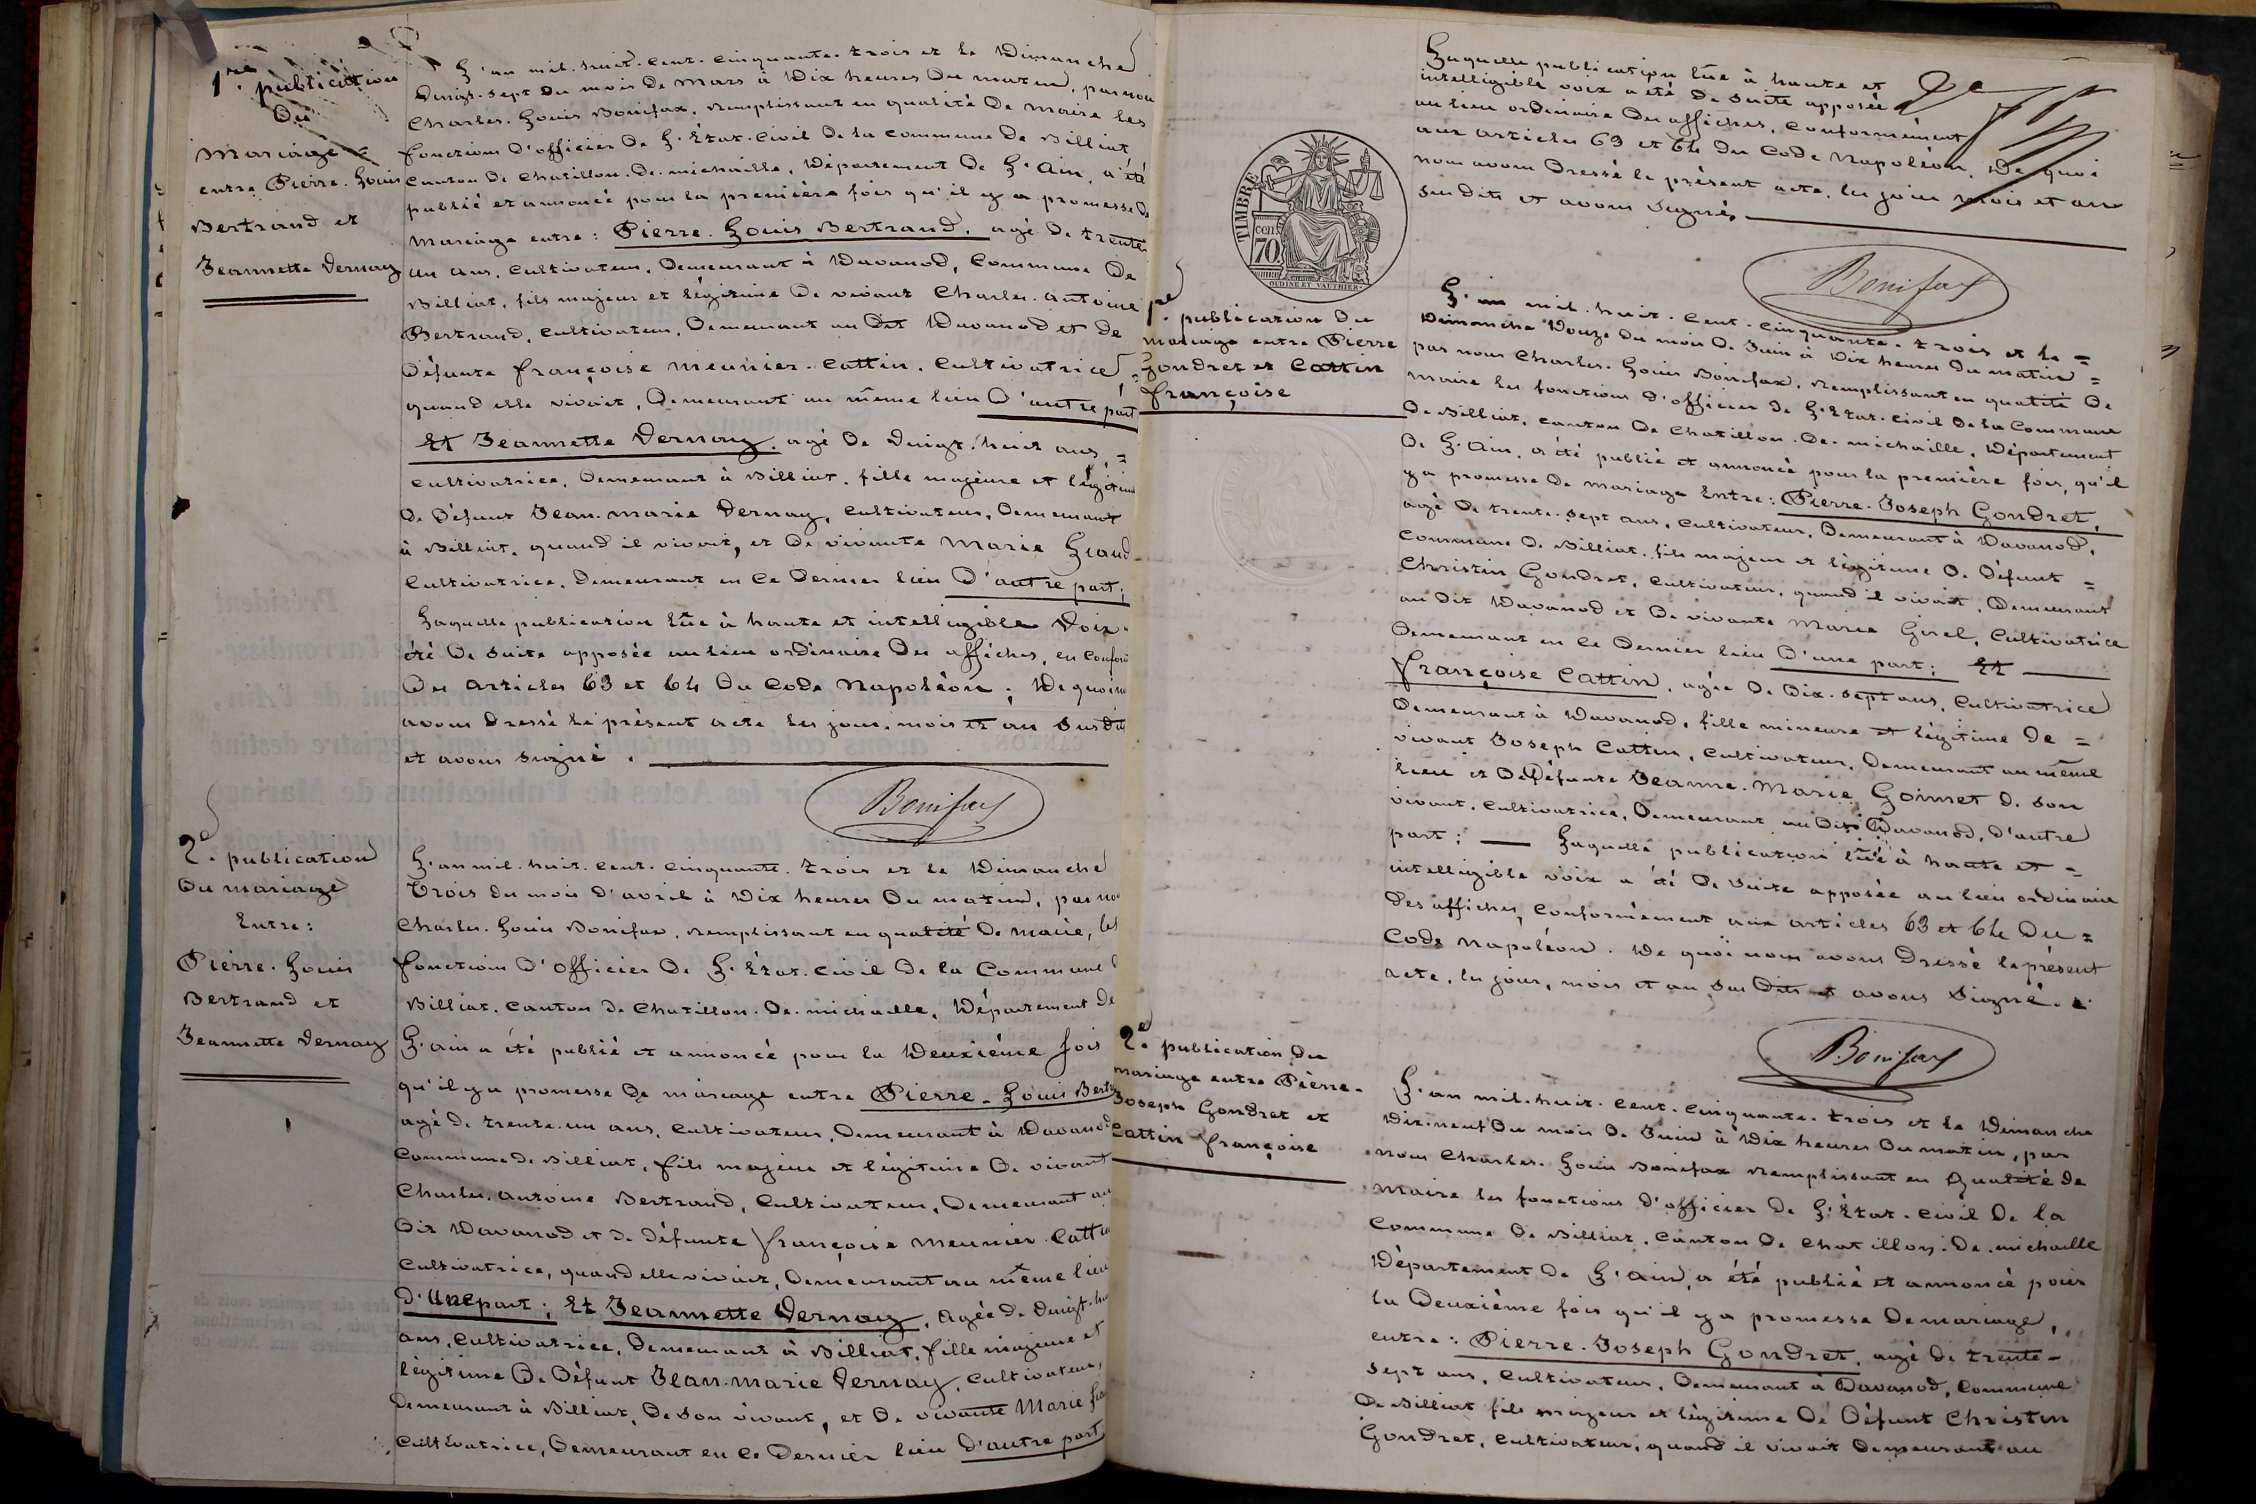 1re. publication
Du
Mariage
entre Pierre. Louis
Bertrand et
Jeannette Vernay
L'an mil. huit. cent. cinquante. trois et le Dimanche
Vingt. sept du mois De Mars à Dix heures Du matin, par nou
Charles. Louis Bonifax, remplissant en qualité De maire les
fonctions D'officier De L'État. Civil De la commune De Billiat
Canton De Chatillon. De. michaille, Département De L'Ain, a été
publié et annoncé pour la première fois qu'il y a promesse De
mariage entre : Pierre. Louis Bertrand, agé De trente
un ans, Cultivateur, Demeurant à Davanod, Commune De
Billiat, fils majeur et légitime De vivant Charles. Antoine
Bertrand, Cultivateur, Demeurant au Dit Davanod et de
Défunte françoise meunier. Cattin. Cultivatrice, =
quand elle vivait, Demeurant au même lieu D'autre part
Et Jeannette Vernay, agé De Vingt. huit ans, =
Cultivatrice, Demeurant à Billiat, fille majeure et légitime
De Défunt Jean. marie Vernay, Cultivateur, Demeurant
à Billiat, quand il vivait, et De vivante Marie
Cultivatrice, Demeurant en ce Dernier lieu D'autre part;
Laquelle publication lûe à haute et intelligible Voix
été De suite apposée au lieu ordinaire Des affiches, en Confor
Des articles 63 et 64 Du Code Napoléon; De quoi
avons Dressé le présent acte les jour, mois et an Susdit
et avons Signé.
Bonifax
2e. publication
Du mariage
Entre:
Pierre. Louis
Bertrand et
Jeannette Vernay
L'an mil. huit. cent. cinquante. trois et le Dimanche
Trois du mois d'avril à Dix heures Du matin, par no
Charles. Louis Bonifax, remplissant en qualité De maire, les
fonctions D'Officier De L'État. Civil De la Commune
Billiat. Canton de Chatillon. De. michaille, Département De
L'Ain a été publié et annoncé pour la Deuxième fois
qu'il y a promesse De mariage entre Pierre. Louis Bert
agé De trente. un ans, Cultivateur, Demeurant à Davanod
Commune de Billiat, fils majeur et légitime De vivant
Charles. Antoine Bertrand, Cultivateur, Demeurant au
Dit Davanod et de Défunte françoise meunier. Catti
Cultivatrice, quand elle vivait, Demeurant au même lieu
D'une part; Et Jeannette Vernay, Agée De Vingt. hu
ans, Cultivatrice, Demeurant à Billiat, fille majeure et
légitime De Défunt Jean. marie Vernay, Cultivateur,
Demeurant à Billiat, De son vivant, et De vivante Marie
Cultivatrice, Demeurant en ce Dernier lieu D'autre part
Laquelle publication lûe à haute et
intelligible voix a été De suite apposée
au lieu ordinaire Des affiches, conformément
aux articles 63 et 64 Du Code Napoléon. De quoi
nous avons Dressé le présent acte, les jour mois et an
sus Dits et avons Signés
Bonifax
TIMBRE
cen.
70
OUDINE ET VAUTHIER
1re. publication Du
mariage entre Pierre
Gondret et Cattin
françoise
L'an mil. huit. cent. cinquante. trois et le =
Dimanche Douze Du mois De Juin à Dix heures Du matin =
par nous Charles. Louis Bonifax, remplissant en qualité De
maire les fonctions D'officier De L'État. Civil De la Commune
De Billiat, canton De Chatillon. De. michaille, Département
De L'Ain, a été publié et annoncé pour la première fois, qu'il
y a promesse De mariage Entre: Pierre. Joseph Gondret,
agé De trente. sept ans, Cultivateur, Demeurant à Davanod,
Commune De Billiat, fils majeur et légitime De Défunt =
Christin Gondret, Cultivateur, quand il vivait, Demeurant
au Dit Davanod et De vivante Marie Girel, Cultivatrice
Demeurant en ce Dernier lieu D'une part; Et
françoise Cattin, agée De Dix. sept ans, Cultivatrice
Demeurant à Davanod, fille mineure et légitime De =
vivant Joseph Cattin, Cultivateur, Demeurant au même
lieu et De Défunte Jeanne. Marie Goinnet De son
vivant, Cultivatrice, Demeurant au Dit Davanod, D'autre
part; Laquelle publication lûe à haute et =
intelligible voix a été De suite apposée au lieu ordinaire
Des affiches, Conformément aux articles 63 et 64 Du =
Code Napoléon. De quoi nous avons Dressé le présent
acte, les jour, mois et an Sus Dits et avons Signé.
Bonifax
2e. publication Du
mariage entre Pierre.
Joseph Gondret et
Cattin françoise
L'an mil. huit. cent. cinquante. trois et le Dimanche
Dix. neuf Du mois De Juin à Dix heures Du matin, par
nous Charles. Louis Bonifax remplissant en Qualité De
maire les fonctions D'officier De L'État. civil De la
Commune De Billiat. Canton De Chatillon. De. michaille
Département De L'Ain, a été publié et annoncé pour
la Deuxième fois qu'il y a promesse De mariage,
entre: Pierre. Joseph Gondret, agé De trente-
sept ans, Cultivateur, Demeurant à Davanod, Commune
De Billiat fils majeur et légitime De Défunt Christin
Gondret, Cultivateur, quand il vivait Demeurant au